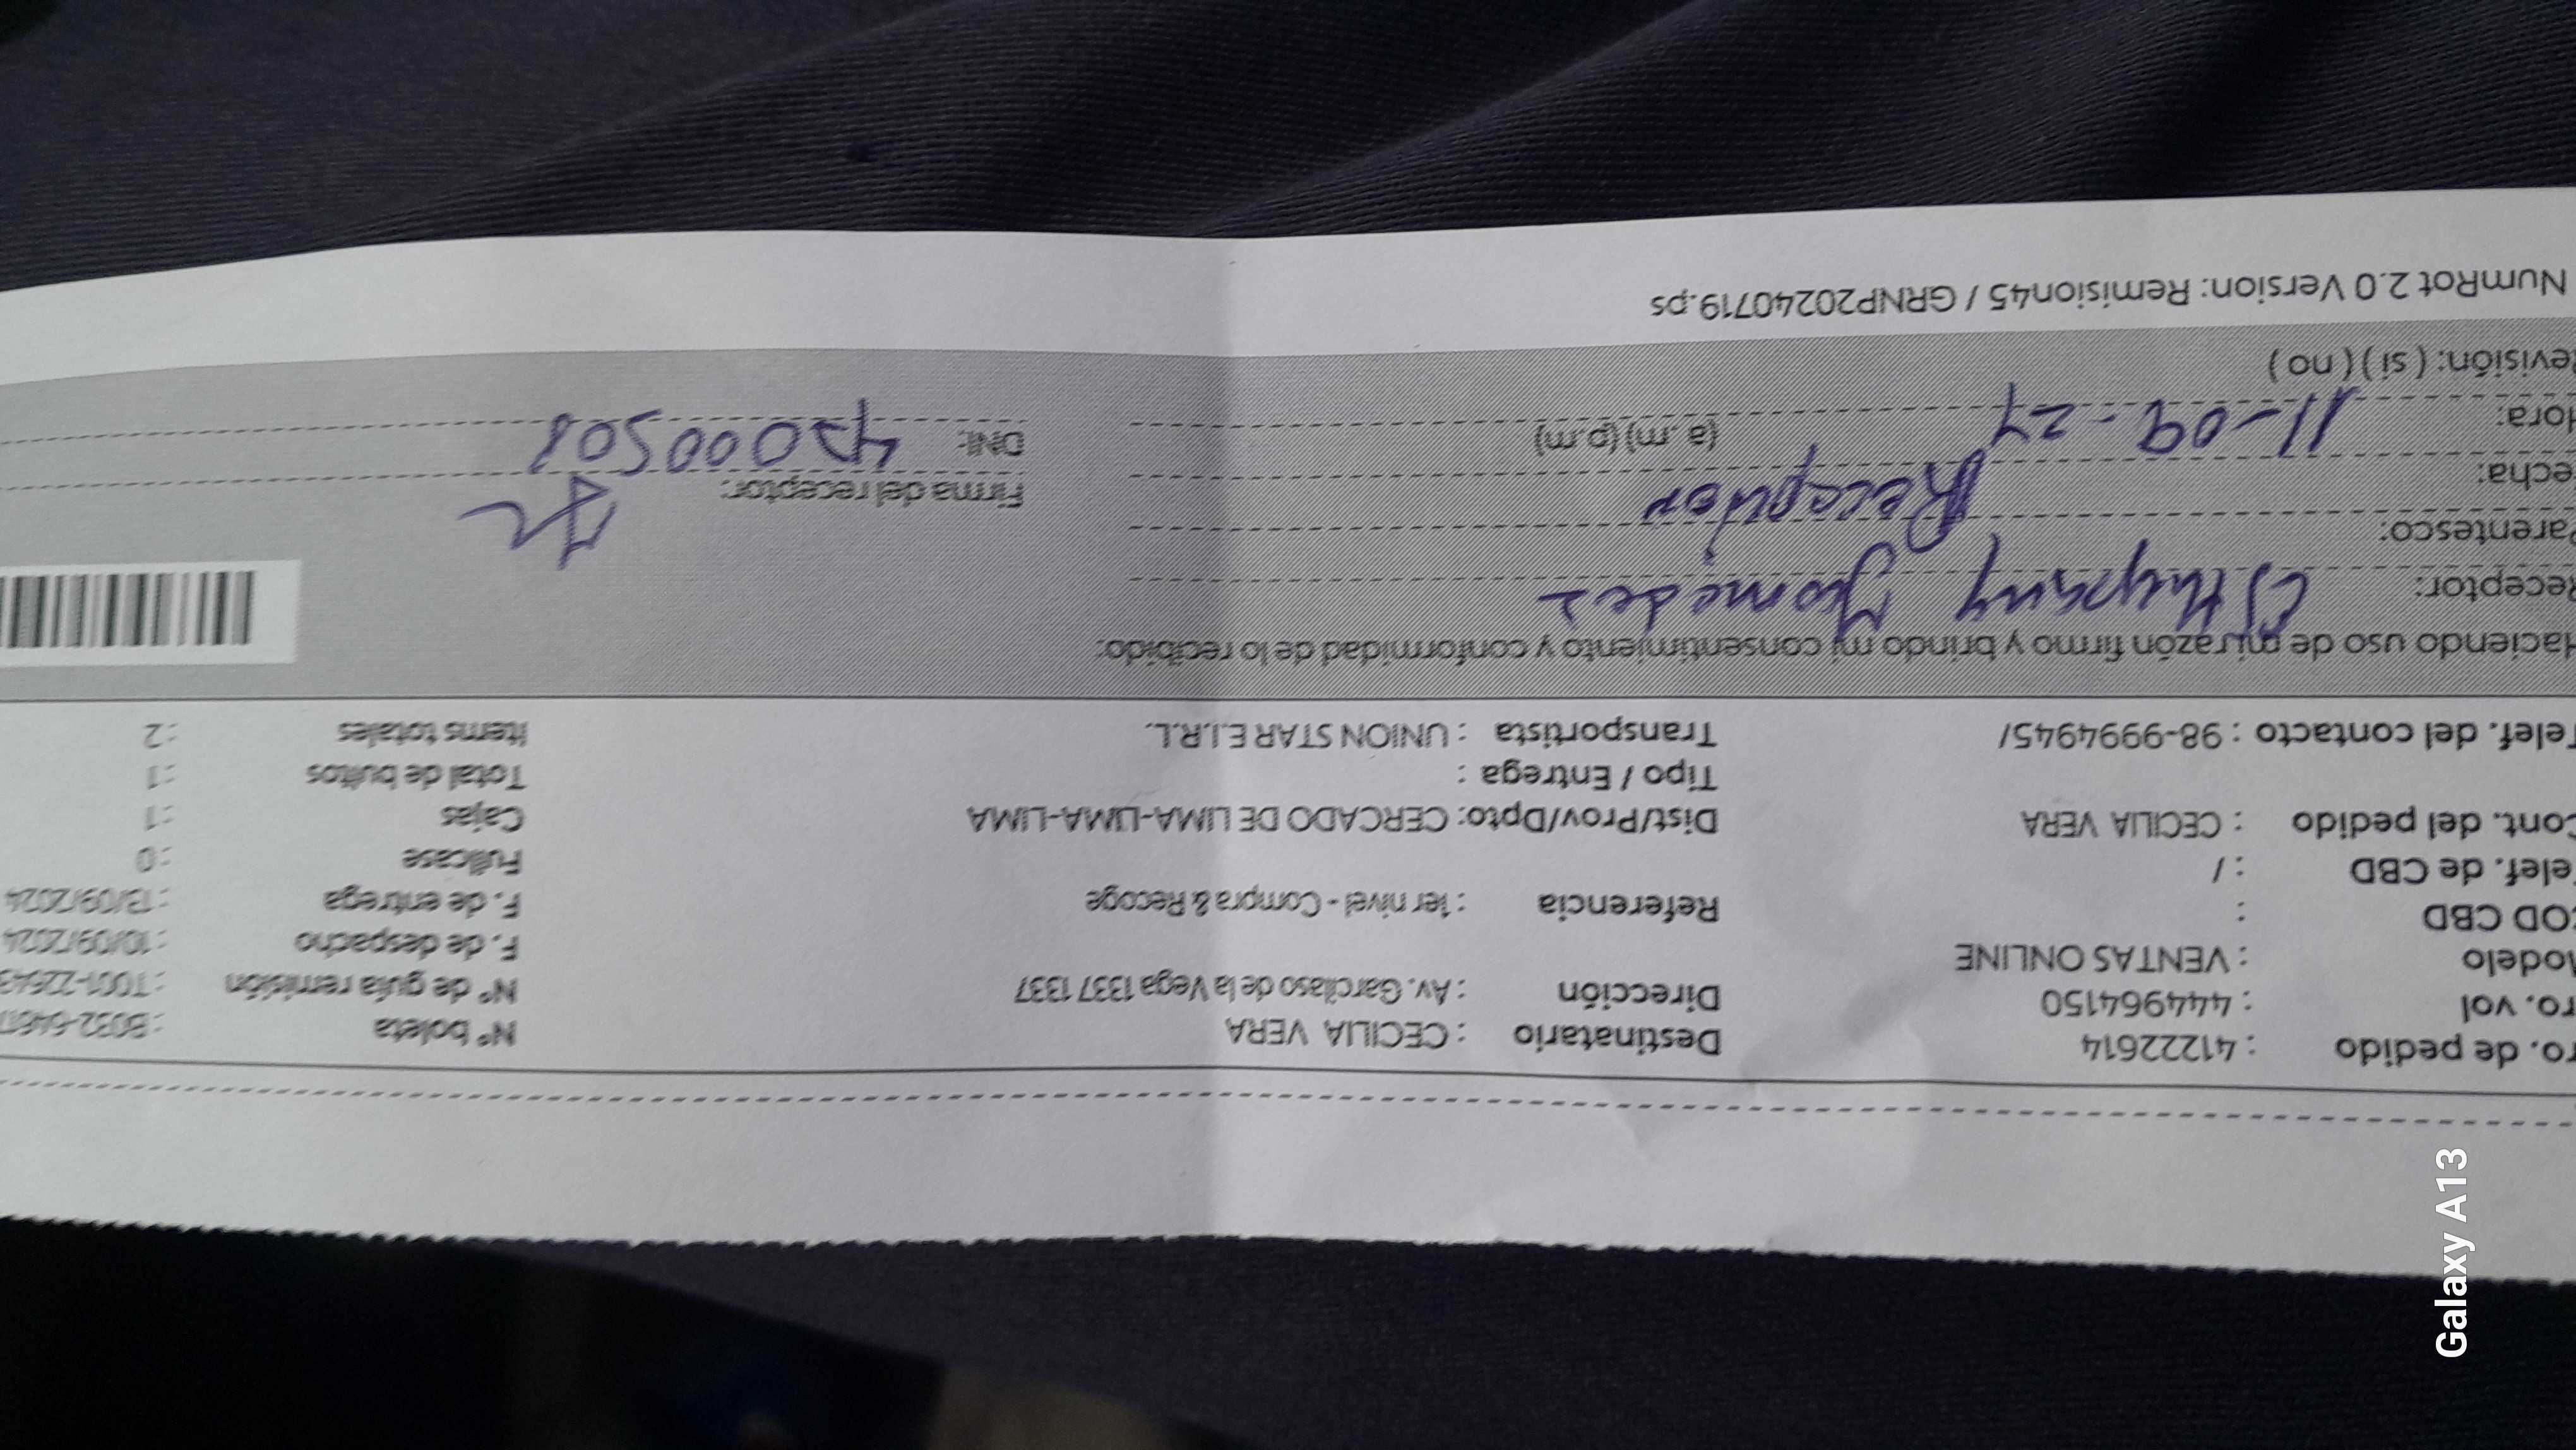 ro. de pedido : 41222614 Destinatario : CECILIA VERA Nº boleta
ro. vol : 444964150 Dirección : Av. Garcilaso de la Vega 1337 1337 Nº de guía remisión
Modelo : VENTAS ONLINE F. de despacho : 10/09/2024
COD CBD : Referencia : 1er nivel - Compra & Recoge F. de entrega : 13/09/2024
Telef. de CBD : / Fullcase : 0
Cont. del pedido : CECILIA VERA Dist/Prov/Dpto: CERCADO DE LIMA-LIMA-LIMA Cajas : 1
Tipo / Entrega : Total de bultos : 1
Telef. del contacto : 98-9994945/ Transportista : UNION STAR E.I.R.L. Items totales : 2
Haciendo uso de mi razón firmo y brindo mi consentimiento y conformidad de lo recibido:
Receptor:
Parentesco: Receptor Firma del receptor:
Fecha: 11-09-24
Hora: (a.m) (p.m) DNI:
Revisión: ( si ) ( no )
NumRot 2.0 Version: Remision45 / GRNP20240719.ps
Galaxy A13